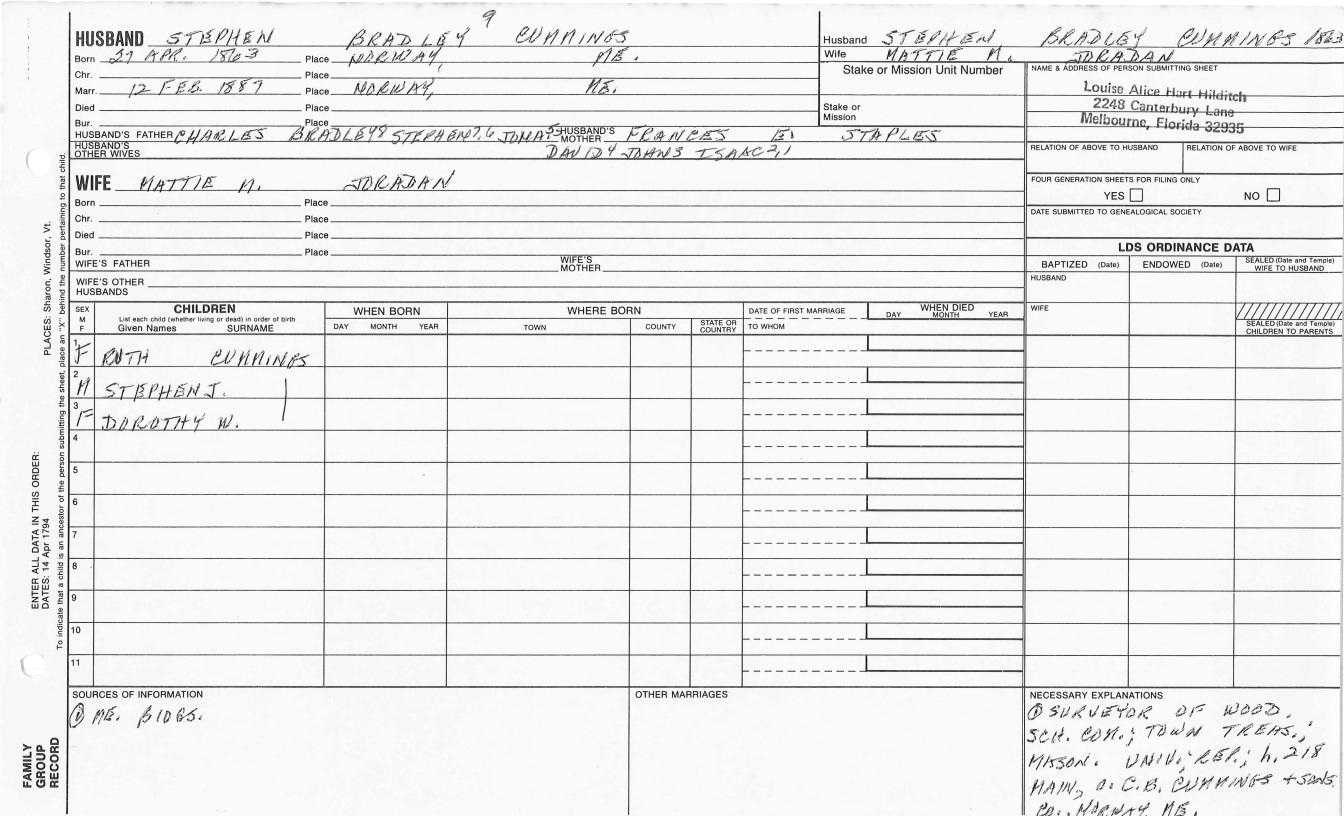 9
HUSBAND STEPHEN BRADLEY CUMMINGS
Born 27 APR. 1863 Place NORWAY, ME.
Chr. Place
Marr. 12 FEB. 1887 Place NORWAY, ME.
Died Place
Bur. Place
HUSBAND'S FATHER CHARLES BRADLEY8 STEPHEN7,6 JONA.5 HUSBAND'S MOTHER FRANCES E. STAPLES
HUSBAND'S OTHER WIVES DAVID4 JOHN3 ISAAC2,1
WIFE MATTIE M. JORADAN
Born Place
Chr. Place
Died Place
Bur. Place
WIFE'S FATHER WIFE'S MOTHER
WIFE'S OTHER HUSBANDS
Husband STEPHEN BRADLEY CUMMINGS 1863
Wife MATTIE M. JORADAN
Stake or Mission Unit Number
Stake or
Mission
NAME & ADDRESS OF PERSON SUBMITTING SHEET
Louise Alice Hart Hilditch
2248 Canterbury Lane
Melbourne, Florida 32935
RELATION OF ABOVE TO HUSBAND RELATION OF ABOVE TO WIFE
FOUR GENERATION SHEETS FOR FILING ONLY
YES NO
DATE SUBMITTED TO GENEALOGICAL SOCIETY
LDS ORDINANCE DATA
BAPTIZED (Date) ENDOWED (Date) SEALED (Date and Temple) WIFE TO HUSBAND
HUSBAND
WIFE
SEALED (Date and Temple)
CHILDREN TO PARENTS
SEX M F CHILDREN WHEN BORN WHERE BORN DATE OF FIRST MARRIAGE WHEN DIED
List each child (whether living or dead) in order of birth
Given Names SURNAME DAY MONTH YEAR TOWN COUNTY STATE OR COUNTRY TO WHOM DAY MONTH YEAR
1 F RUTH CUMMINGS
2 M STEPHEN J.
3 F DOROTHY W.
4
5
6
7
8
9
10
11
SOURCES OF INFORMATION
① ME. BIOGS.
OTHER MARRIAGES
NECESSARY EXPLANATIONS
① SURVEYOR OF WOOD.
SCH. COM.; TOWN TREAS.;
MASON. UNIV.; REP.; h. 218
MAIN, O. C.B. CUMMINGS + SONS
CO., NORWAY ME.
PLACES: Sharon, Windsor, Vt.
ENTER ALL DATA IN THIS ORDER:
DATES: 14 Apr 1794
To indicate that a child is an ancestor of the person submitting the sheet, place an "X" behind the number pertaining to that child.
FAMILY
GROUP
RECORD